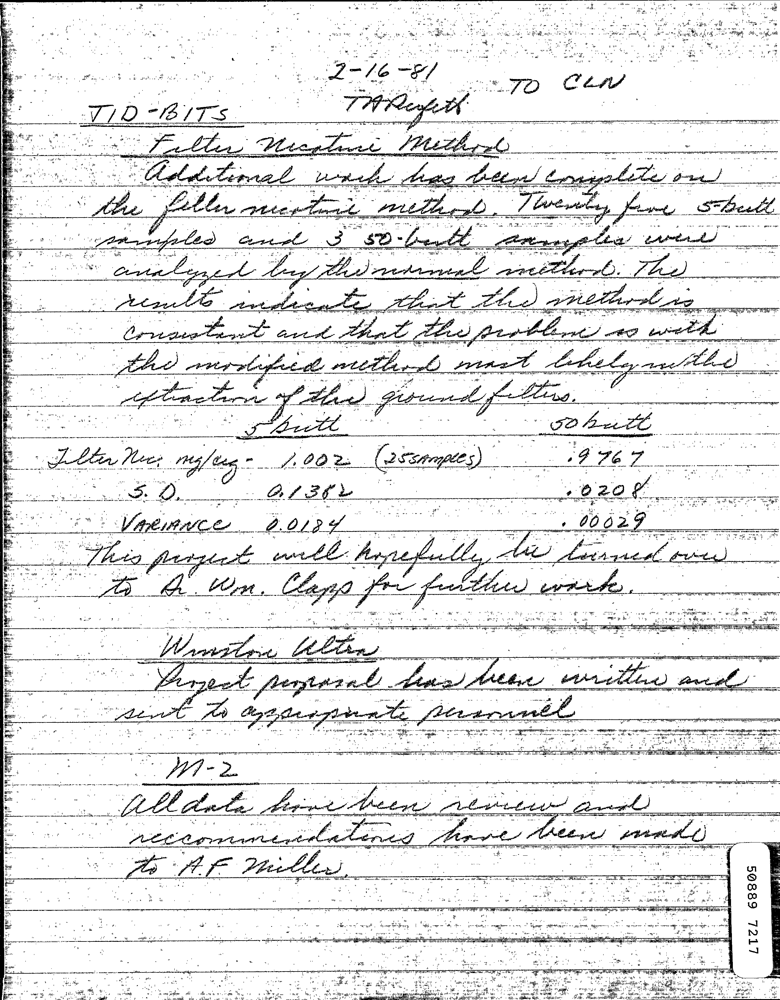 2-16-81
TO CLN
TA Perfetti
TID-BITS
Filter Nicotine Method
Additional work has been complete on
the filter nicotine method. Twenty five 5-butt
samples and 3 50-butt samples were
analyzed by the normal method. The
results indicate that the method is
consistant and that the problem is with
the modified method most likely in the
extraction of the ground filters.
5 butt 50 butt
Filter Nic. mg/cig - 1.002 (25 SAMPLES) .9767
S. D. 0.1382 .0208
VARIANCE 0.0184 .00029
This project will hopefully be turned over
to Dr. Wm. Clapp for further work.
Winston Ultra
Project proposal has been written and
sent to appropriate personnel
M-2
All data have been review and
reccommendations have been made
to A.F Miller.
50889 7217